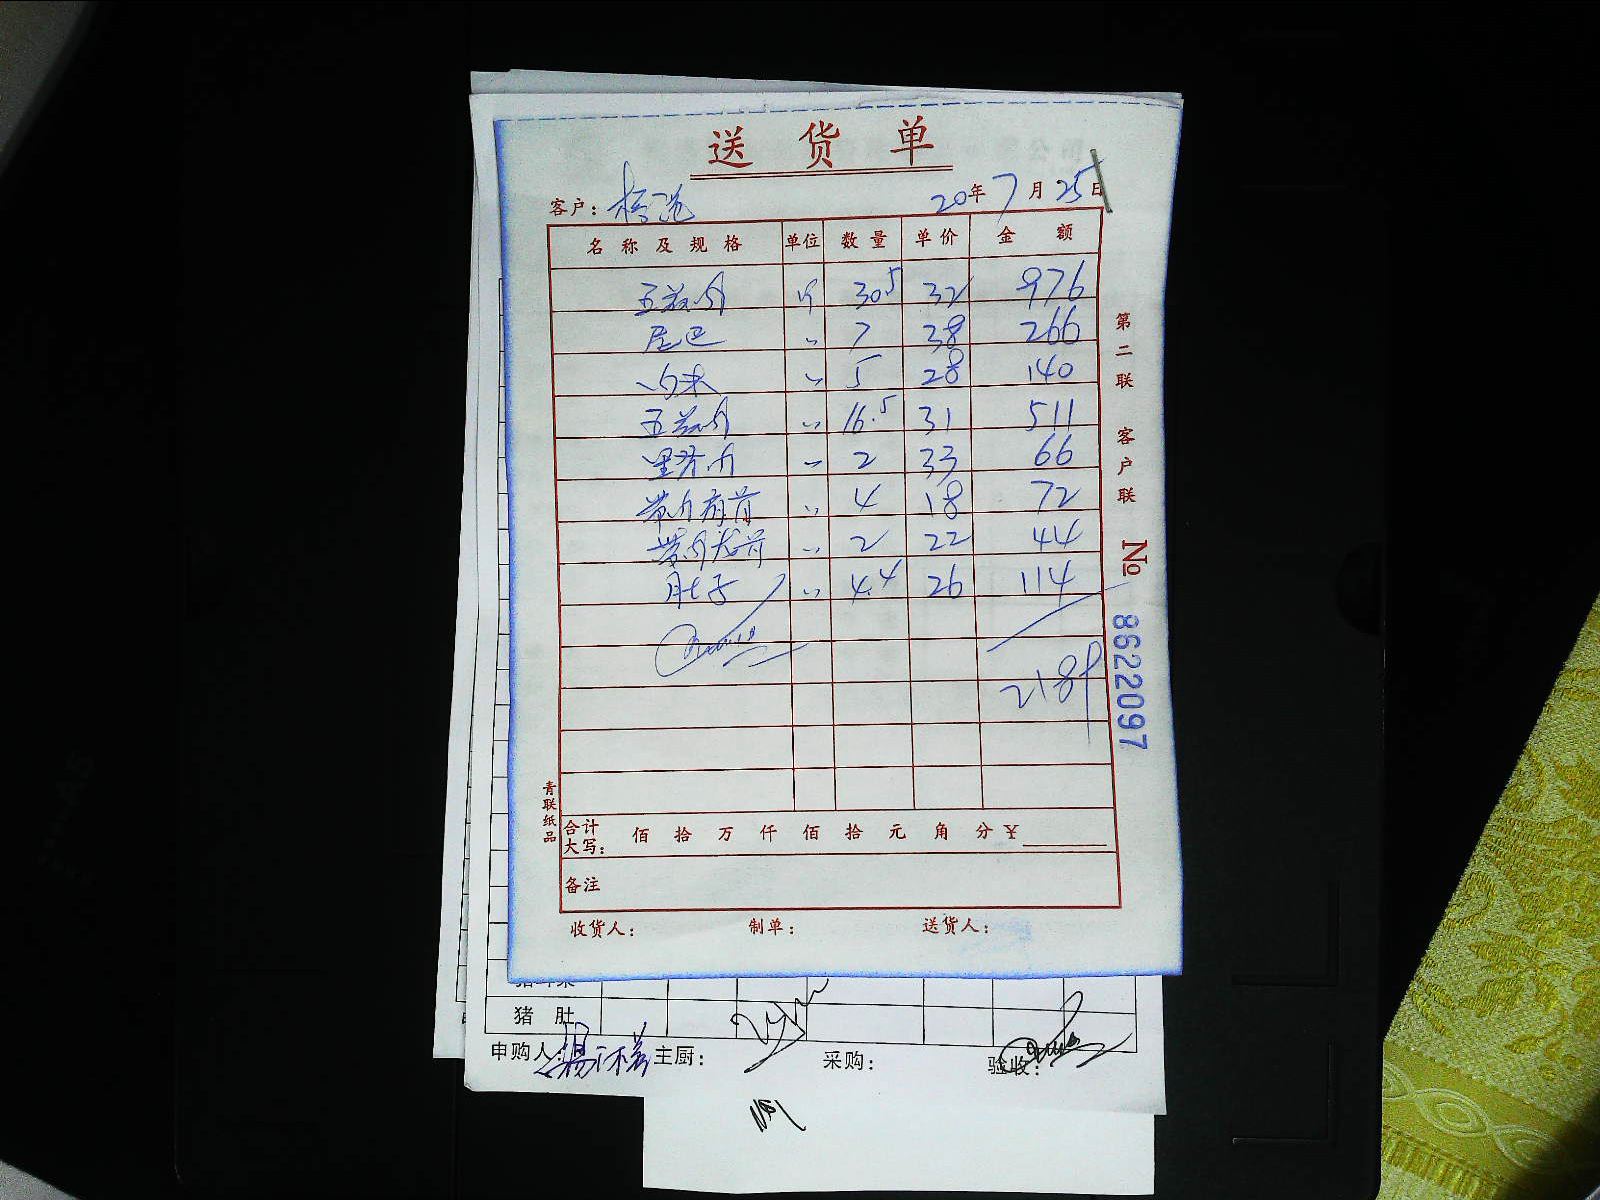 送货单
客户：
20年7月25日
名称及规格 单位 数量 单价 金额
五花肉 斤 30.5 32 976
尾巴 〃 7 38 266
肉末 〃 5 28 140
五花肉 〃 16.5 31 511
里脊肉 〃 2 33 66
带肉 〃 4 18 72
带肉龙骨 〃 2 22 44
肚子 〃 4.4 26 114
2189
合计大写： 佰拾万仟佰拾元角分￥
备注
收货人： 制单： 送货人：
第二联 客户联
No 8622097
青联纸品
猪肚
申购人： 主厨： 采购： 验收：